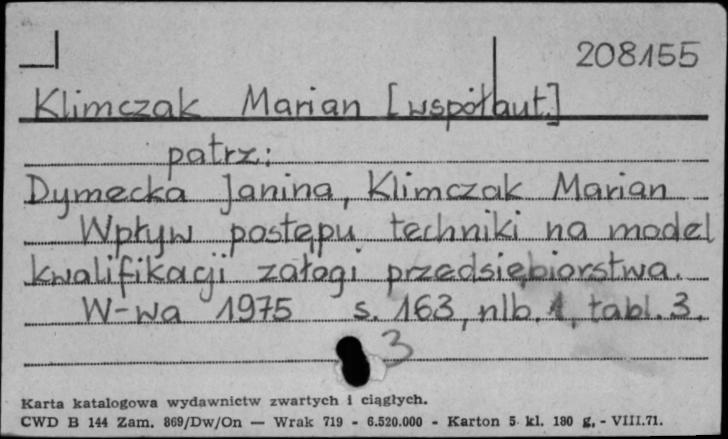 208155
Klimczak Marian [współaut.]
patrz:
Dymecka Janina, Klimczak Marian
Wpływ postępu techniki na model
kwalifikacji załogi przedsiębiorstwa.
W-wa 1975 s. 163, nlb. 1, tabl. 3.
3
Karta katalogowa wydawnictw zwartych i ciągłych.
CWD B 144 Zam. 869/Dw/On — Wrak 719 - 6.520.000 - Karton 5 kl. 180 g, - VIII.71.